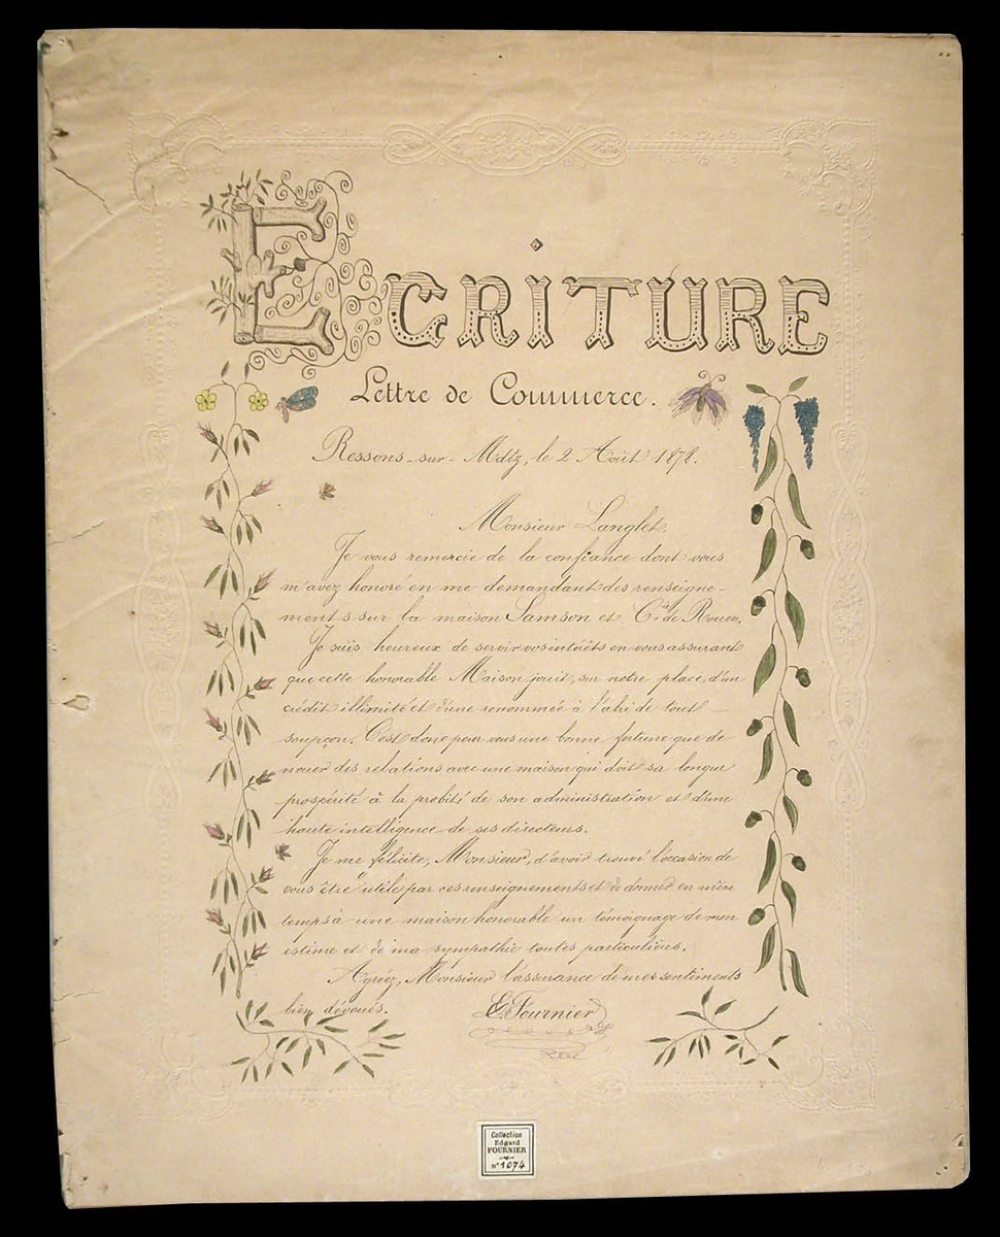 ECRITURE
Lettre de Commerce.
Ressons-sur-Matz, le 2 Août 1878.
Monsieur Langlet.
Je vous remercie de la confiance dont vous
m'avez honoré en me demandant des renseigne-
ments sur la maison Samson et Cie de Rouen.
Je suis heureux de servir vos intérêts en vous assurant
que cette honorable Maison jouit, sur notre place, d'un
crédit illimité et d'une renommée à l'abri de tout
soupçon. C'est donc pour vous une bonne fortune que de
nouer des relations avec une maison qui doit sa longue
prospérité à la probité de son administration et d'une
haute intelligence de ses directeurs.
Je me félicite, Monsieur, d'avoir trouvé l'occasion de
vous être utile par ces renseignements et de donner en mêm
temps à une maison honorable un témoignage de mon
estime et de ma sympathie toutes particulières.
Agréez, Monsieur l'assurance de mes sentiments
bien dévoués.
E. Fournier
Collection
Edgard
FOURNIER
N° 1074